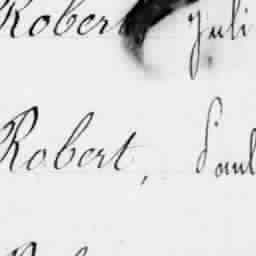 Robert, Juli
Robert, Paul